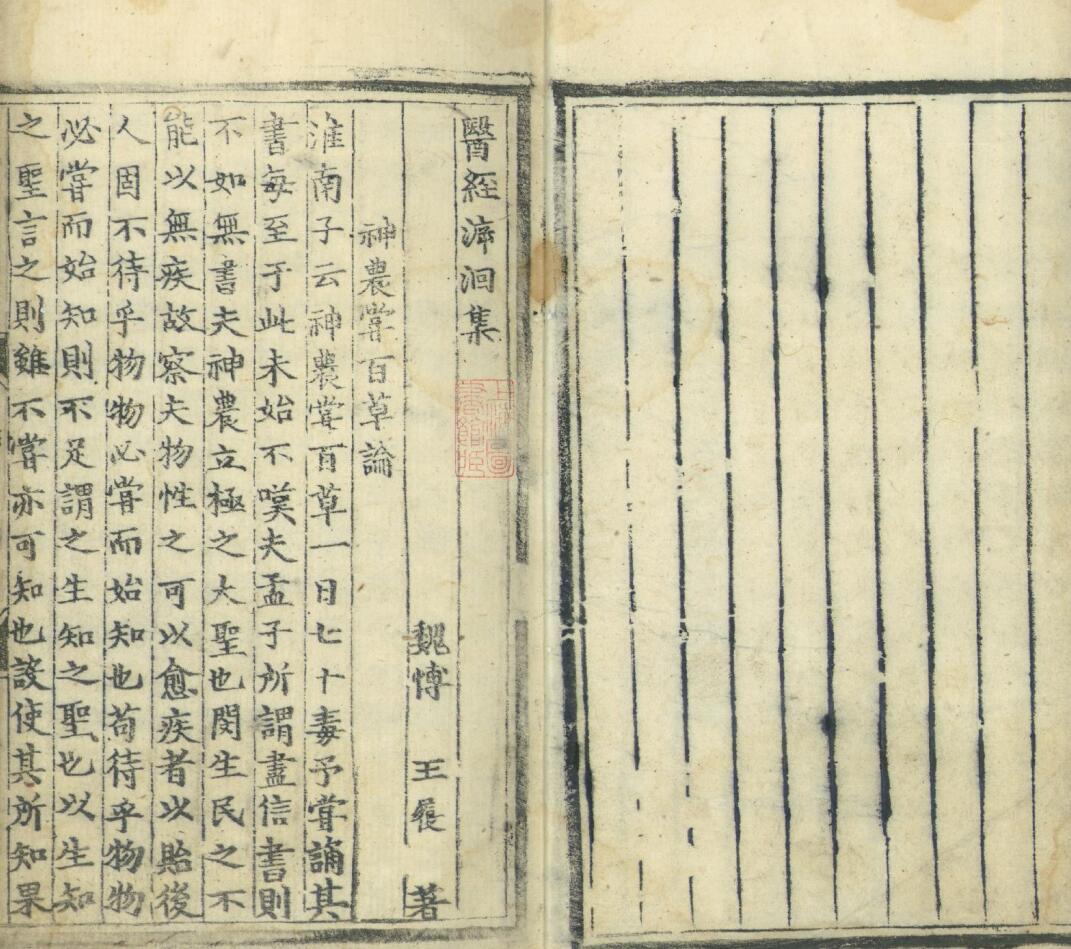 醫經溯洄集
魏博 王履 著
神農嘗百草論
淮南子云神農嘗百草一日七十毒予嘗誦其
書每至于此未始不嘆夫孟子所謂盡信書則
不如無書夫神農立極之大聖也閔生民之不
能以無疾故察夫物性之可以愈疾者以貽後
人固不待乎物物必嘗而始知也苟待乎物物
必嘗而始知則不足謂之生知之聖也以生知
之聖言之則雖不嘗亦可知也設使其所知果